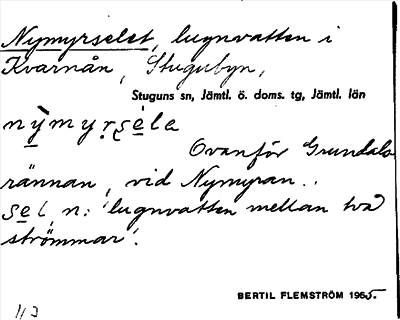 Nymyrselet, lugnvatten i
Kvarnån, Stugubyn,
Stuguns sn, Jämtl. ö. doms. tg, Jämtl. län
nỳmyrse̲la
Ovanför Grundals-
rännan, vid Nymyran.
sel, n: 'lugnvatten mellan två
strömmar'.
BERTIL FLEMSTRÖM 1965.